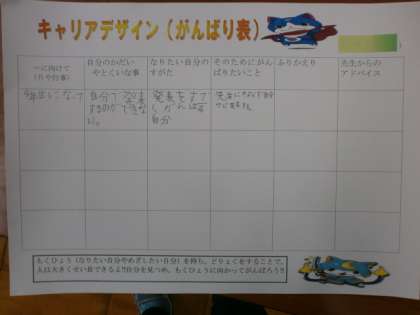 キャリアデザイン（がんばり表）
～に向けて
（月や行事）
自分のかだい
やとくいな事
なりたい自分の
すがた
そのためにがん
ばりたいこと
ふりかえり
先生からの
アドバイス
年生になって
自分で発表
するのができな
い。
発表をすす
がんばる
自分
もくひょう（なりたい自分やめざしたい自分）を持ち、どりょくをすることで、
人は大きくせい長できるよ!!自分を見つめ、もくひょうに向かってがんばろう!!